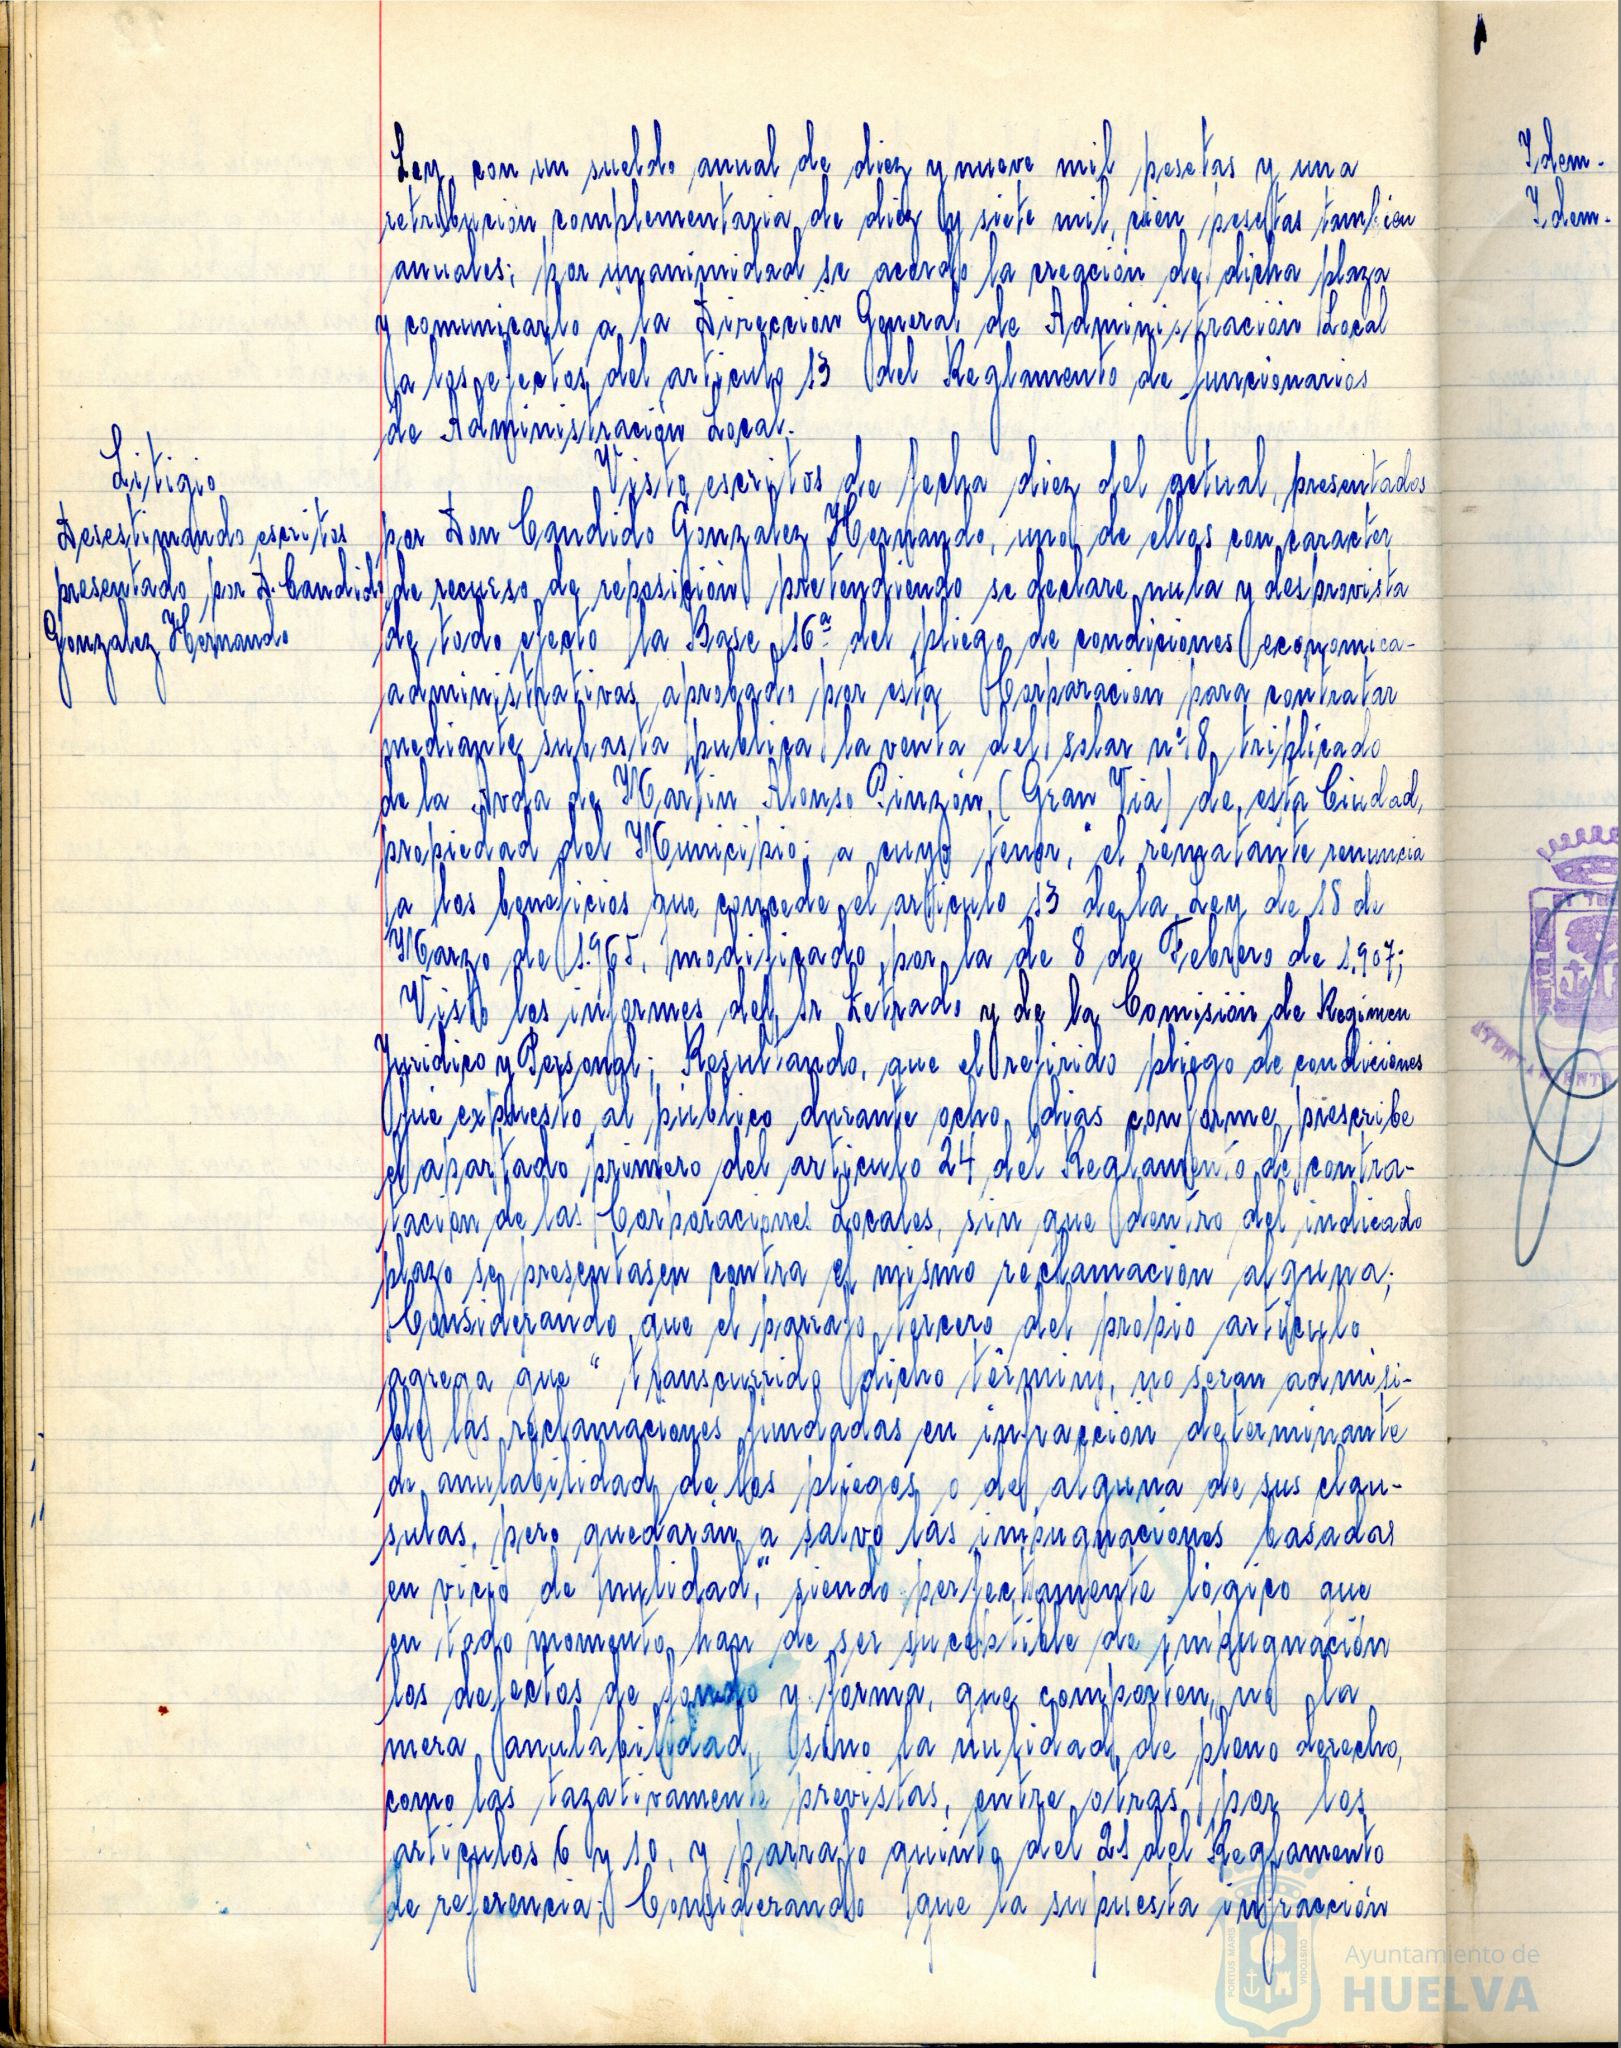 Ley, con un sueldo anual de diez y nueve mil pesetas y una
retribución complementaria de diez y siete mil, cien pesetas tambien
anuales; por unanimidad se acordo la creación de dicha plaza
y comunicarlo a la Dirección General de Administración Local
a los efectos del articulo 13 del Reglamento de funcionarios
de Administración Local.
Litigio
Desestimando escritos
presentado por D. Candido
Gonzalez Hernando
Visto escritos de fecha diez del actual, presentados
por Don Candido Gonzalez Hernando, uno de ellos con caracter
de recurso de reposición pretendiendo se declare nula y desprovista
de todo efecto la Base 16ª del pliego de condiciones economica-
administrativas aprobado por esta Corporación para contratar
mediante subasta publica la venta del solar nº 8 triplicado
de la Avda de Martin Alonso Pinzón (Gran Via) de esta Ciudad,
propiedad del Municipio; a cuyo tenor, "el rematante renuncia
a los beneficios que concede el articulo 13 de la Ley de 18 de
Marzo de 1.965, modificado por la de 8 de Febrero de 1.907;
Visto los informes del Sr Letrado y de la Comisión de Regimen
Juridico y Personal; Resultando, que el referido pliego de condiciones
fué expuesto al publico durante ocho dias conforme prescribe
el apartado primero del articulo 24 del Reglamento de contra-
tación de las Corporaciones Locales, sin que dentro del indicado
plazo se presentasen contra el mismo reclamación alguna;
Considerando que el parrafo tercero del propio articulo
agrega que "transcurrido dicho término, no seran admisi-
ble las reclamaciones fundadas en infracción determinante
de anulabilidad de los pliegos o de alguna de sus clau-
sulas, pero quedarán a salvo las impugnaciones basadas
en vicio de nulidad," siendo perfectamente lógico que
en todo momento han de ser suceptible de impugnación
los defectos de fondo y forma, que comporten, no la
mera anulabilidad, sino la nulidad de pleno derecho,
como las tazativamente previstas, entre otras, por los
articulos 6 y 10, y parrafo quinto del 21 del Reglamento
de referencia; Considerando que la supuesta infracción
Idem.
Idem.
AYUNTAMIENTO
PORTUS MARIS
CUSTODIA
Ayuntamiento de
HUELVA